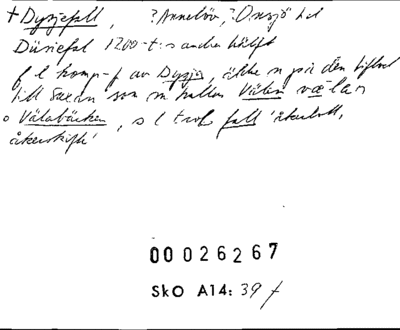 + Dysjefall, ? Annelöv, ? Onsjö hd
Düsiefal 1200-t:s andra hälft
f l komp-f av Dysja, äldre n på den biflod
till Saxån som nu kallas Välan
o Välabäcken, s l t fall 'åkerlott,
åkerskifte'
00026267
SkO A14: 39 f